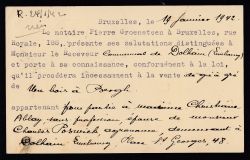 R-24/1/42
Bruxelles, le 19 Janvier 1942
Le notaire Pierre Groensteen à Bruxelles, rue
Royale, 108, présente ses salutations distinguées à
Monsieur le Receveur Communal de Dolhain (Limbourg)
et porte à sa connaissance, conformément à la loi,
qu'il procèdera incessamment à la vente de gré à gré
de Un bois à
appartenant pour partie à madame Christiane
sans profession, épouse de monsieur
Charles agronome demeurant à
Dolhain Limbourg Place St Georges, 48